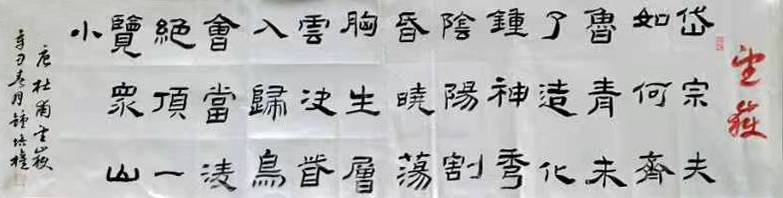 望嶽
岱宗夫
如何齊
魯青未
了造化
鍾神秀
陰陽割
昏曉蕩
胸生層
雲決眥
入歸鳥
會當凌
絕頂一
覽眾山
小
唐杜甫望嶽
辛丑春月鍾培